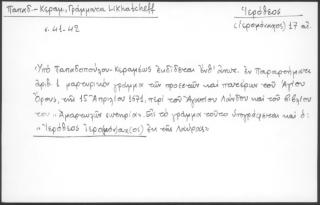 Παπαδ.-Κεραμ., Γράμματα Likhatcheff
Ἱερόθεος
(ἱερομόναχος) 17 αἰ.
σ. 41-42
«Ὑπὸ Παπαδοπούλου-Κεραμέως ἐκδίδεται ἐνθ' ἀνωτ. ἐν Παραρτήματι
ἀριθ. 1 μαρτυρικὸν γράμμα τῶν προεστῶν καὶ πατέρων τοῦ Ἁγίου
Ὄρους, τῆς 15 Ἀπριλίου 1671, περὶ τοῦ Ἀγαπίου Λάνδου καὶ τοῦ βιβλίου
του «Ἁμαρτωλῶν σωτηρία». Εἰς τὸ γράμμα τοῦτο ὑπογράφεται καὶ ὁ:
«Ἱερόθεος ἱερομόναχος ἐκ τῆς Λαύρας»